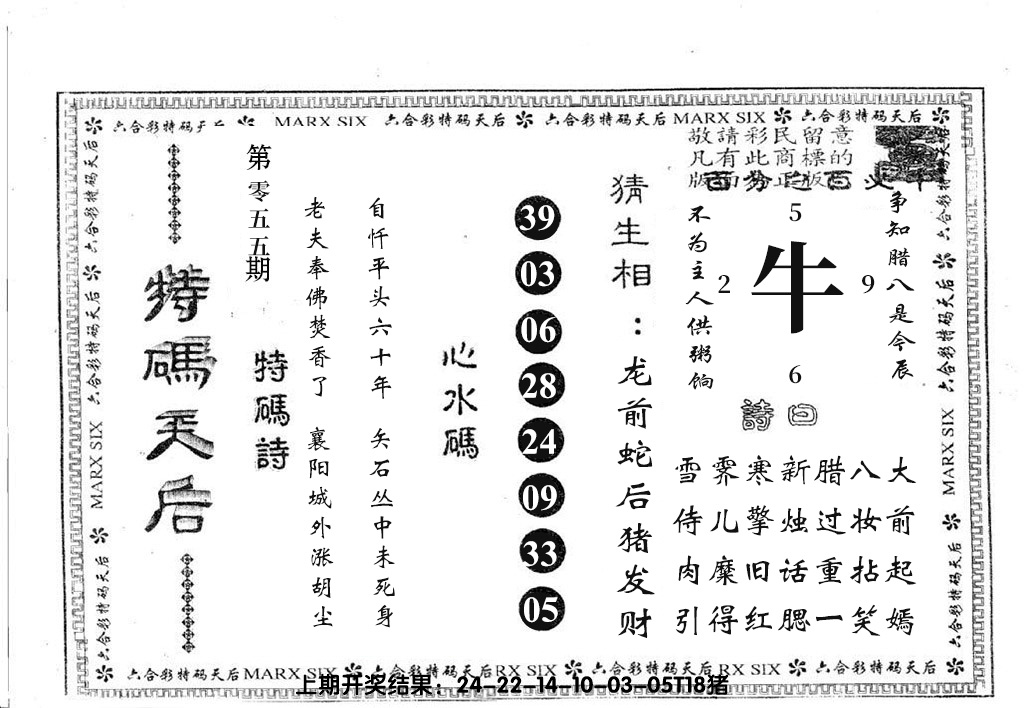 六合彩特码天后 MARX SIX 六合彩特码天后 六合彩特码天后 MARX SIX 六合彩特码天后
敬請彩民留意
凡有此商標的
版面為正版
第零五五期
特碼天后
特碼詩
自忏平头六十年 矢石丛中未死身
老夫奉佛焚香了 襄阳城外涨胡尘
心水碼
39
03
06
28
24
09
33
05
猜生相：龙前蛇后猪发财
争知腊八是今辰
不为主人供粥饷
5
2 牛 9
6
詩曰
大前起嫣
八妆拈笑
腊过重一
新烛话腮
寒擎旧红
霁儿糜得
雪侍肉引
六合彩特码天后
MARX SIX
六合彩特码天后
六合彩特码天后
MARX SIX
六合彩特码天后
六合彩特码天后 MARX SIX 六合彩特码天后 RX SIX 六合彩特码天后 RX SIX 六合彩特码天后
上期开奖结果：24-22-14-10-03-05T18猪